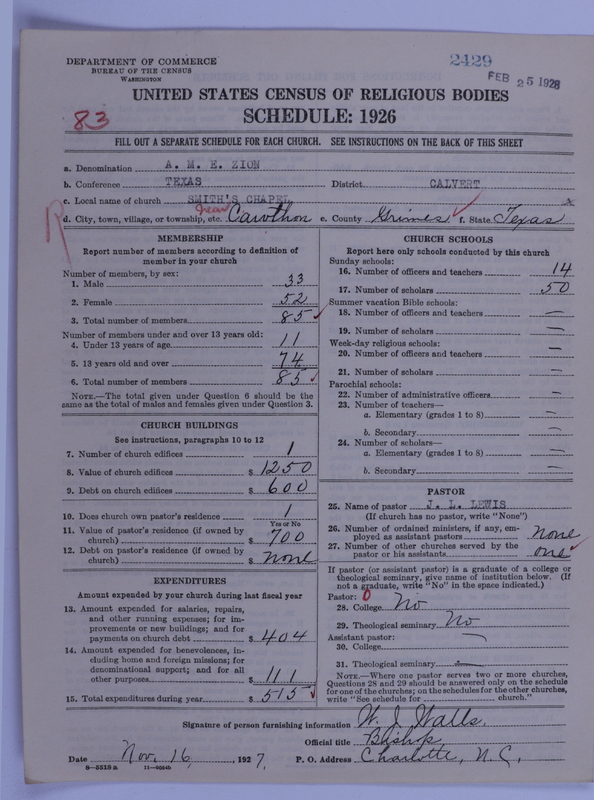 DEPARTMENT OF COMMERCE
BUREAU OF THE CENSUS
WASHINGTON
2429
FEB 25 1928
UNITED STATES CENSUS OF RELIGIOUS BODIES
SCHEDULE: 1926
83
FILL OUT A SEPARATE SCHEDULE FOR EACH CHURCH. SEE INSTRUCTIONS ON THE BACK OF THIS SHEET
a. Denomination A. M. E. ZION
b. Conference TEXAS District CALVERT
c. Local name of church SMITH'S CHAPEL
d. City, town, village, or township, etc. Cawthon e. County Grimes f. State Texas
MEMBERSHIP
Report number of members according to definition of
member in your church
Number of members, by sex:
1. Male 33
2. Female 52
3. Total number of members 85
Number of members under and over 13 years old:
4. Under 13 years of age 11
5. 13 years old and over 74
6. Total number of members 85
NOTE.—The total given under Question 6 should be the
same as the total of males and females given under Question 3.
CHURCH BUILDINGS
See instructions, paragraphs 10 to 12
7. Number of church edifices 1
8. Value of church edifices $ 1250
9. Debt on church edifices $ 600
10. Does church own pastor's residence 1
Yes or No
11. Value of pastor's residence (if owned by
church) $ 700
12. Debt on pastor's residence (if owned by
church) $ none
EXPENDITURES
Amount expended by your church during last fiscal year
13. Amount expended for salaries, repairs,
and other running expenses; for im-
provements or new buildings; and for
payments on church debt $ 404
14. Amount expended for benevolences, in-
cluding home and foreign missions; for
denominational support; and for all
other purposes $ 111
15. Total expenditures during year $ 515
CHURCH SCHOOLS
Report here only schools conducted by this church
Sunday schools:
16. Number of officers and teachers 14
17. Number of scholars 50
Summer vacation Bible schools:
18. Number of officers and teachers —
19. Number of scholars —
Week-day religious schools:
20. Number of officers and teachers —
21. Number of scholars —
Parochial schools:
22. Number of administrative officers —
23. Number of teachers—
a. Elementary (grades 1 to 8) —
b. Secondary —
24. Number of scholars—
a. Elementary (grades 1 to 8) —
b. Secondary —
PASTOR
25. Name of pastor J. L. LEWIS
(If church has no pastor, write "None")
26. Number of ordained ministers, if any, em-
ployed as assistant pastors none
27. Number of other churches served by the
pastor or his assistants one
If pastor (or assistant pastor) is a graduate of a college or
theological seminary, give name of institution below. (If
not a graduate, write "No" in the space indicated.)
Pastor: 0
28. College No
29. Theological seminary No
Assistant pastor:
30. College —
31. Theological seminary —
NOTE.—Where one pastor serves two or more churches,
Questions 28 and 29 should be answered only on the schedule
for one of the churches; on the schedules for the other churches,
write "See schedule for church."
Signature of person furnishing information W. J. Walls,
Official title Bishop
Date Nov. 16, 1927, P. O. Address Charlotte, N.C.
8—5518a 11—9024b